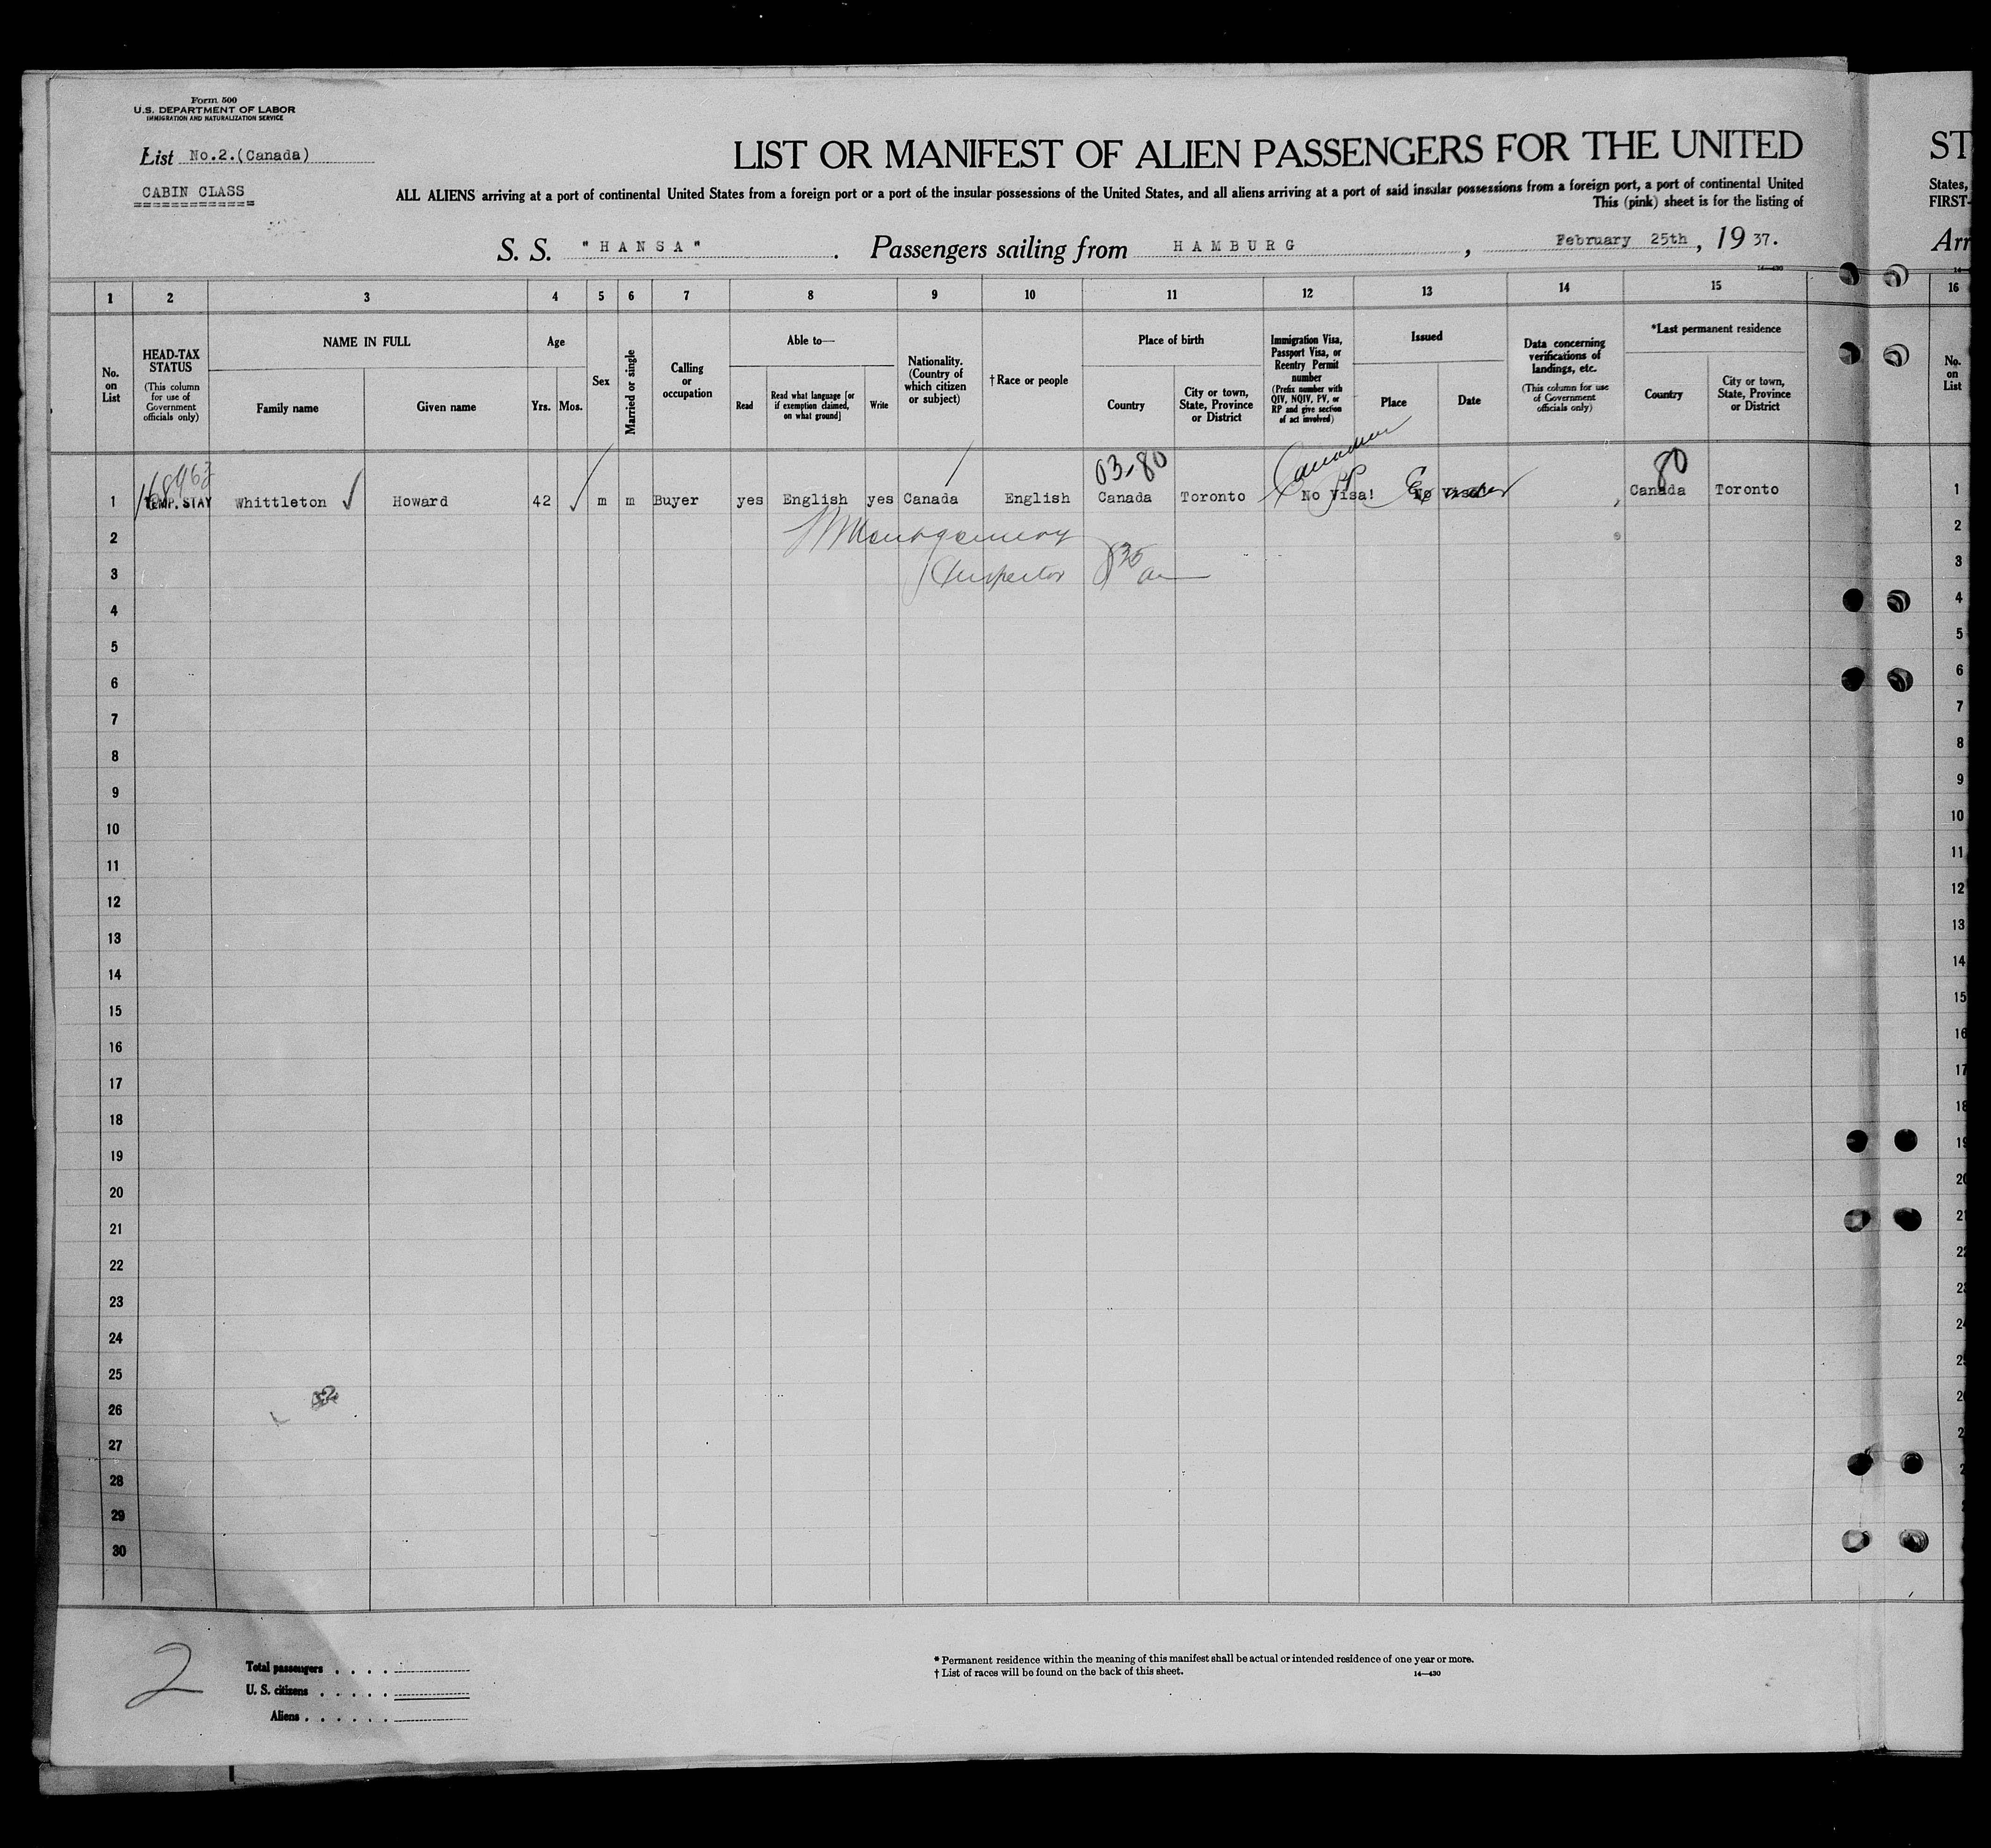 Form 500
U.S. DEPARTMENT OF LABOR
IMMIGRATION AND NATURALIZATION SERVICE
List No.2.(Canada)
CABIN CLASS
LIST OR MANIFEST OF ALIEN PASSENGERS FOR THE UNITED
ALL ALIENS arriving at a port of continental United States from a foreign port or a port of the insular possessions of the United States, and all aliens arriving at a port of said insular possessions from a foreign port, a port of continental United
This (pink) sheet is for the listing of
S. S. "HANSA". Passengers sailing from HAMBURG, February 25th, 1937.
14—430
ST
States,
FIRST-
Arr
1 2 3 4 5 6 7 8 9 10 11 12 13 14 15 16
No. on List
HEAD-TAX STATUS (This column for use of Government officials only)
NAME IN FULL
Family name
Given name
Age
Yrs.
Mos.
Sex
Married or single
Calling or occupation
Able to—
Read
Read what language [or if exemption claimed, on what ground]
Write
Nationality. (Country of which citizen or subject)
†Race or people
Place of birth
Country
City or town, State, Province or District
Immigration Visa, Passport Visa, or Reentry Permit number (Prefix number with QIV, NQIV, PV, or RP and give section of act involved)
Issued
Place
Date
Data concerning verifications of landings, etc. (This column for use of Government officials only)
*Last permanent residence
Country
City or town, State, Province or District
No. on List
03-80 Canadian 80
1 TEMP. STAY Whittleton ✓ Howard 42 ✓ m m Buyer yes English yes Canada English Canada Toronto No Visa! No Visa! Canada Toronto 1
2 Montgomery 2
3 Inspector 8 35 am 3
4 4
5 5
6 6
7 7
8 8
9 9
10 10
11 11
12 12
13 13
14 14
15 15
16 16
17 17
18 18
19 19
20
21
22
23
24
25
26
27
28
29
30
2
Total passengers
U. S. citizens
Aliens
* Permanent residence within the meaning of this manifest shall be actual or intended residence of one year or more.
† List of races will be found on the back of this sheet. 14—430